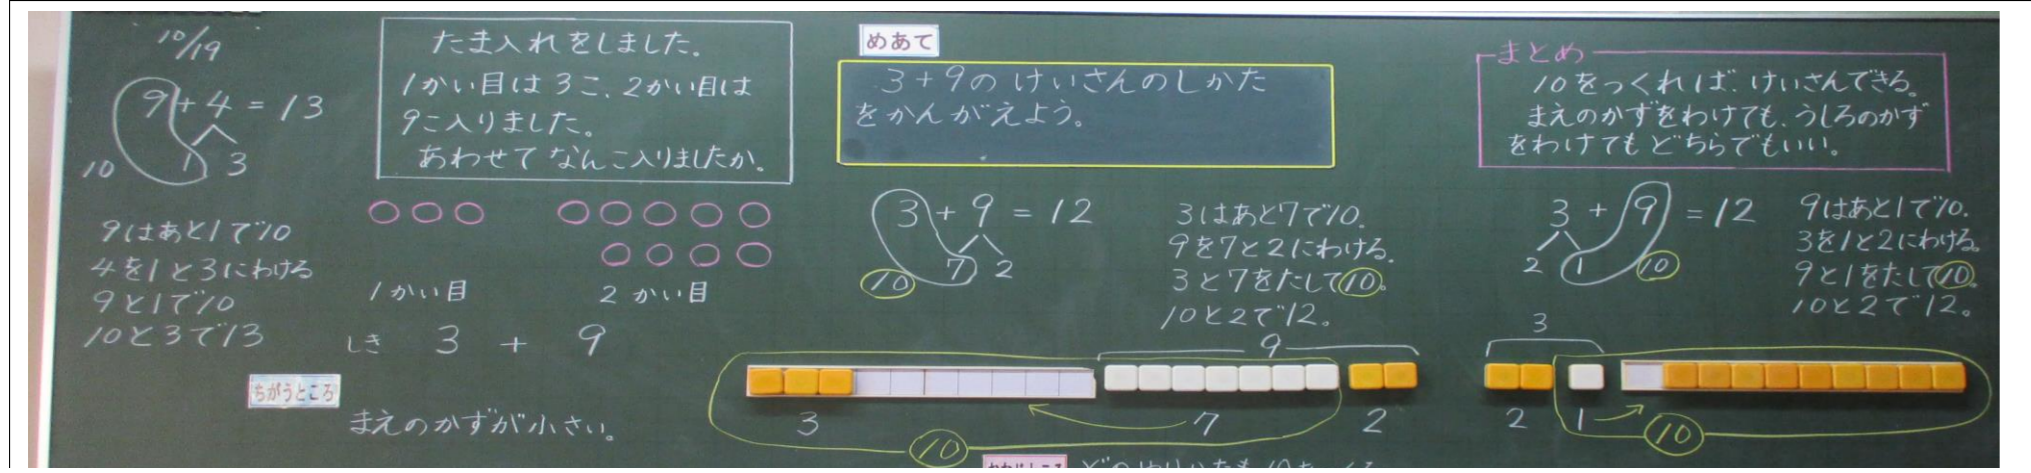 10/19
9+4=13
1 3
10
9はあと1で10
4を1と3にわける
9と1で10
10と3で13
たま入れをしました。
1かい目は3こ、2かい目は
9こ入りました。
あわせてなんこ入りましたか。
1かい目 2かい目
しき 3 + 9
ちがうところ
まえのかずが小さい。
めあて
3+9のけいさんのしかた
をかんがえよう。
3+9=12
7 2
10
3はあと7で10.
9を7と2にわける.
3と7をたして10。
10と2で12。
9
3 7 2
10
まとめ
10をつくれば、けいさんできる。
まえのかずをわけても、うしろのかず
をわけてもどちらでもいい。
3+9=12
2 1 10
9はあと1で10.
3を1と2にわける。
9と1をたして10。
10と2で12。
3
2 1
10